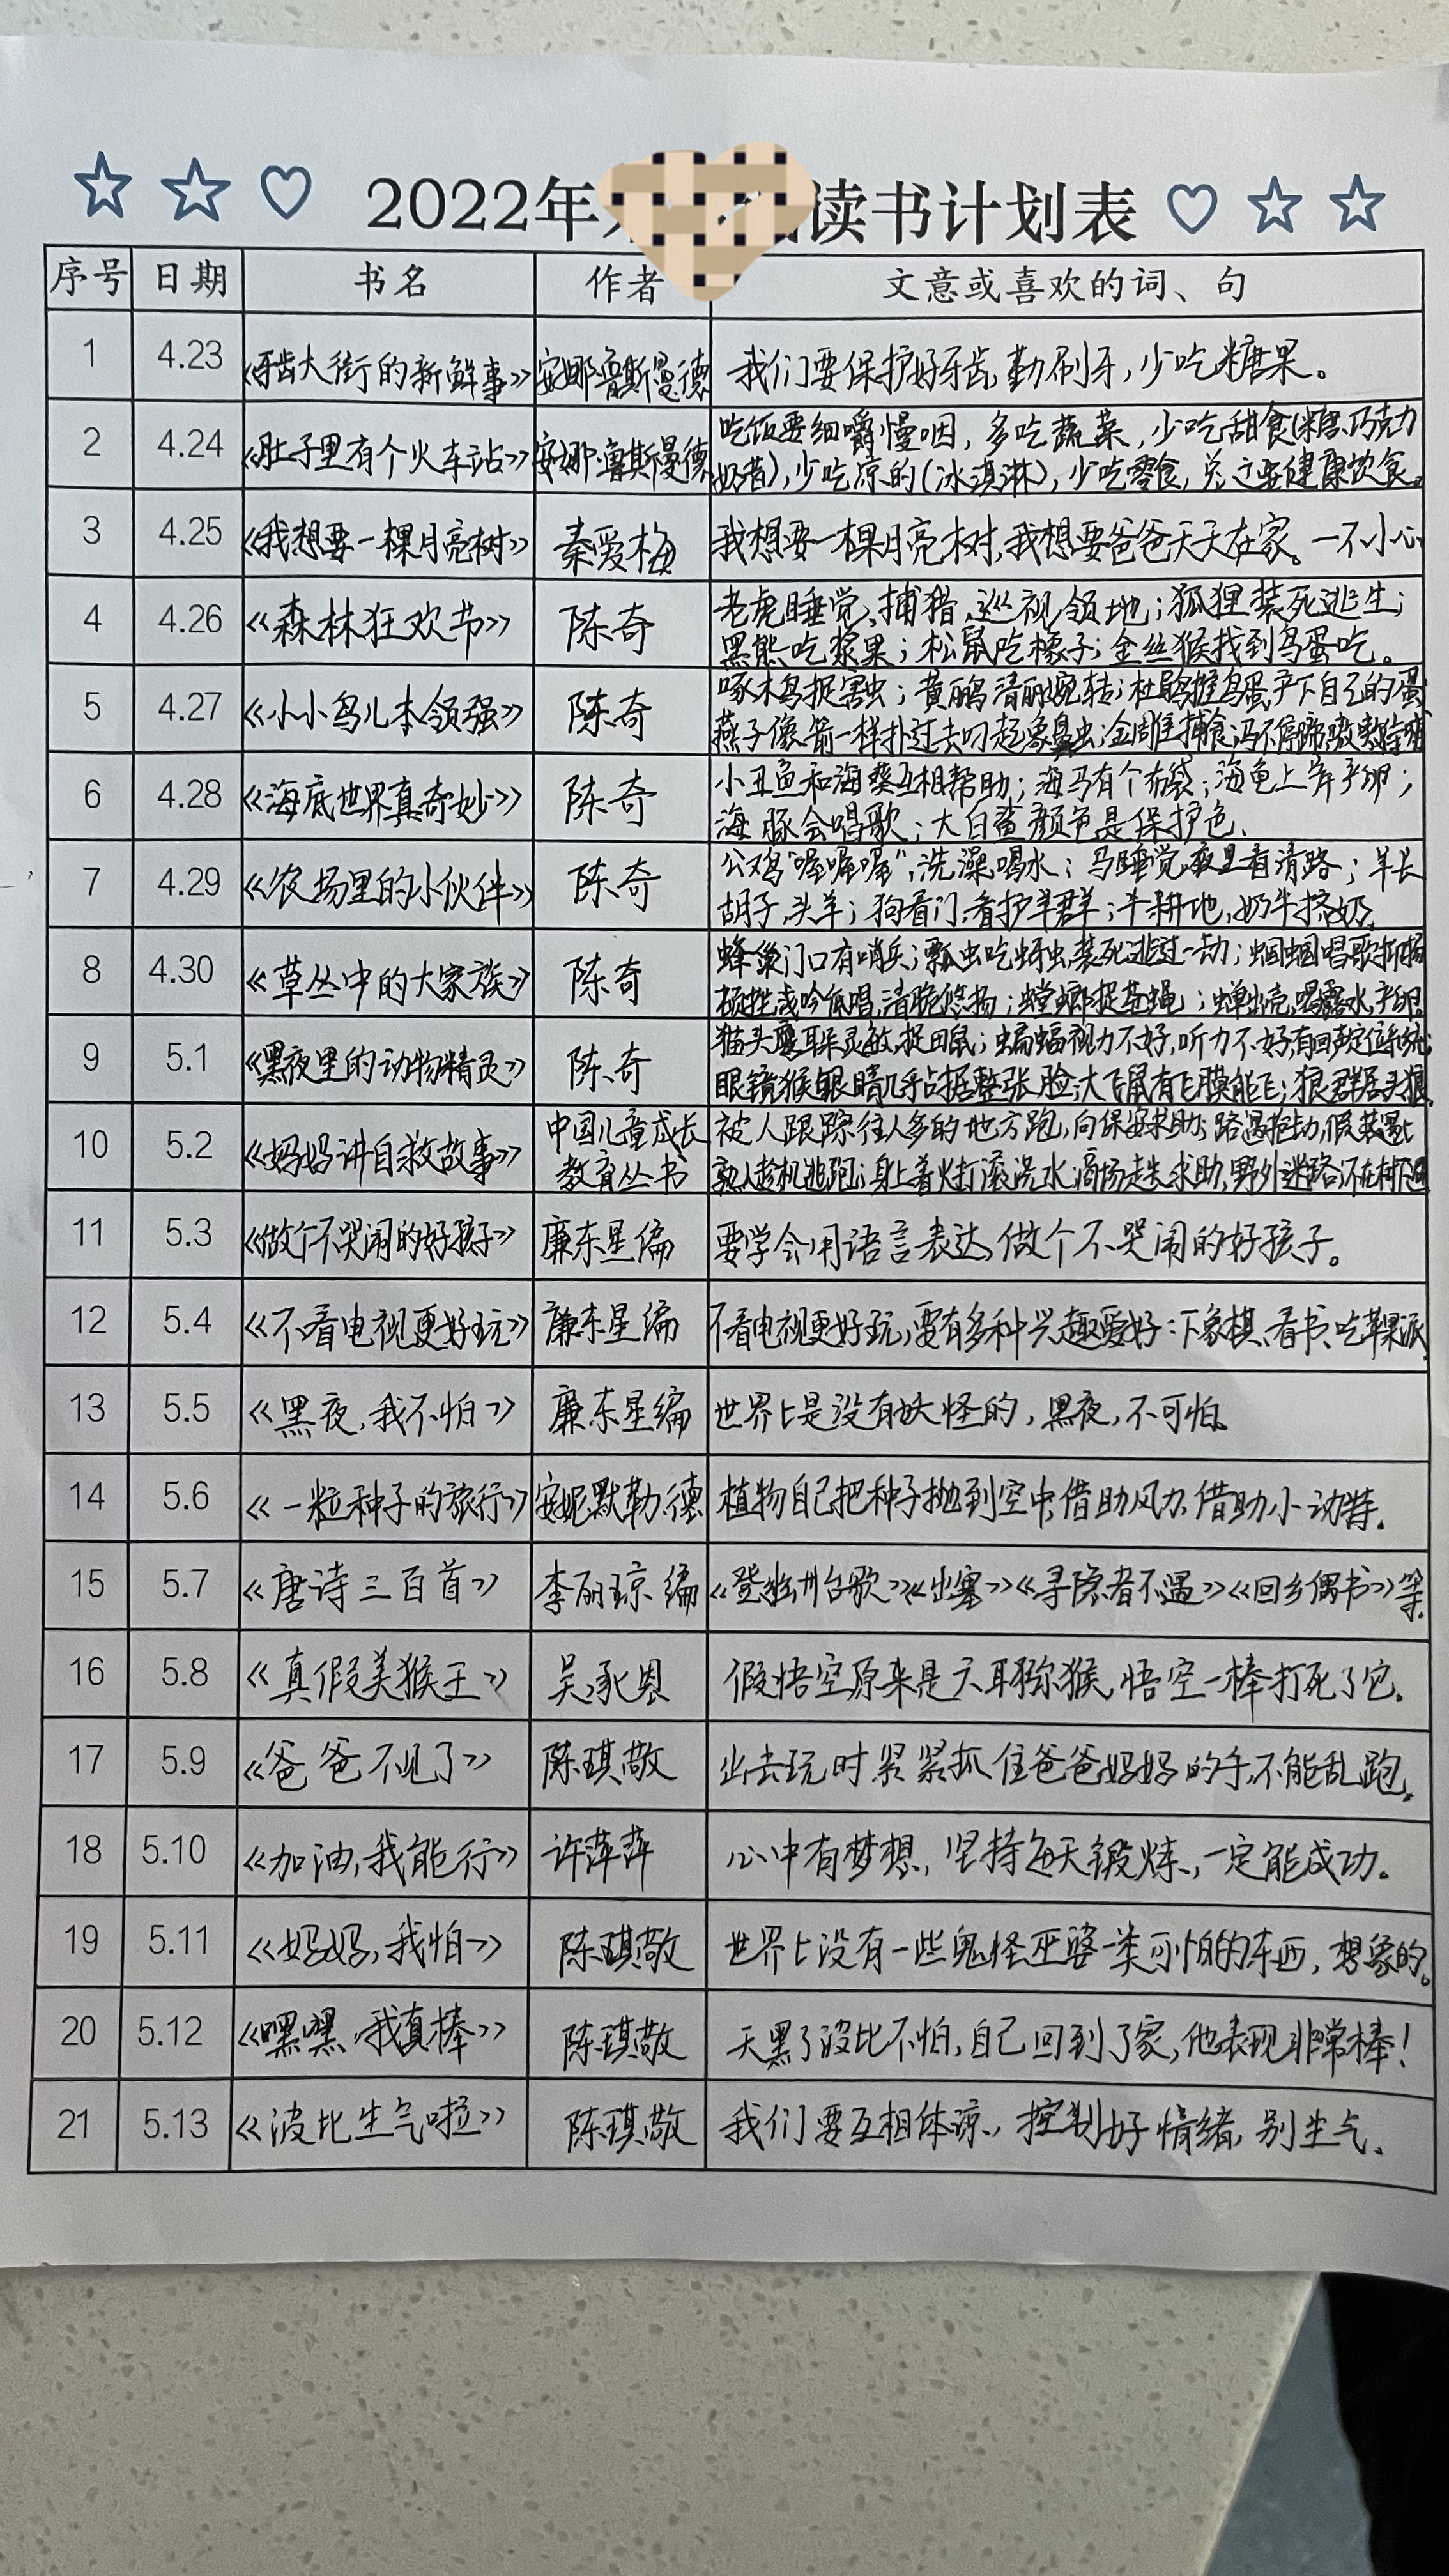 2022年 读书计划表
序号 日期 书名 作者 文意或喜欢的词、句
1 4.23 《牙齿大街的新鲜事》 安娜·鲁斯曼德 我们要保护好牙齿,勤刷牙,少吃糖果。
2 4.24 《肚子里有个火车站》 安娜·鲁斯曼德 吃饭要细嚼慢咽,多吃蔬菜,少吃甜食(糖、巧克力
奶昔),少吃凉的(冰淇淋),少吃零食,总之要健康饮食。
3 4.25 《我想要一棵月亮树》 秦爱梅 我想要一棵月亮树,我想要爸爸天天在家。一不小心
4 4.26 《森林狂欢节》 陈奇 老虎睡觉,捕猎,巡视领地;狐狸装死逃生;
黑熊吃浆果;松鼠吃橡子;金丝猴找到鸟蛋吃。
5 4.27 《小小鸟儿本领强》 陈奇 啄木鸟捉害虫;黄鹂鸟清丽婉转;杜鹃推鸟蛋产下自己的蛋
燕子像箭一样扑过去叼起象鼻虫;金雕捕食
6 4.28 《海底世界真奇妙》 陈奇 小丑鱼和海葵互相帮助;海马有个布袋;海龟上岸产卵;
海豚会唱歌;大白鲨颜色是保护色.
7 4.29 《农场里的小伙伴》 陈奇 公鸡“喔喔喔”,洗澡,喝水;马睡觉,夜里看清路;羊长
胡子,头羊;狗看门,看护羊群;牛耕地,奶牛挤奶.
8 4.30 《草丛中的大家族》 陈奇 蜂巢门口有哨兵;瓢虫吃蚜虫,装死逃过一劫;蝈蝈唱歌抑扬
顿挫浅吟低唱,清脆悠扬;螳螂捉苍蝇;蝉出壳,喝露水,产卵.
9 5.1 《黑夜里的动物精灵》 陈奇 猫头鹰耳朵灵敏,捉田鼠;蝙蝠视力不好,听力不好有回声定位系统;
眼镜猴眼睛几乎占据整张脸;大飞鼠有飞膜能飞;狼群居头狼
10 5.2 《妈妈讲自救故事》 中国儿童成长 被人跟踪往人多的地方跑,向保安求助;路遇抢劫,假装遇上
教育丛书 熟人趁机逃跑;身上着火打滚浇水,商场走失求助,野外迷路,
11 5.3 《做个不哭闹的好孩子》 廉东星编 要学会用语言表达,做个不哭闹的好孩子。
12 5.4 《不看电视更好玩》 廉东星编 不看电视更好玩,要有多种兴趣爱好:下象棋、看书、吃苹果派
13 5.5 《黑夜,我不怕》 廉东星编 世界上是没有妖怪的,黑夜,不可怕.
14 5.6 《一粒种子的旅行》 安妮默勒.德 植物自己把种子抛到空中,借助风力,借助小动物等.
15 5.7 《唐诗三百首》 李丽琼编 《登幽州台歌》《出塞》《寻隐者不遇》《回乡偶书》等.
16 5.8 《真假美猴王》 吴承恩 假悟空原来是六耳猕猴,悟空一棒打死了它.
17 5.9 《爸爸不见了》 陈琪敬 出去玩时紧紧抓住爸爸妈妈的手,不能乱跑.
18 5.10 《加油,我能行》 许萍萍 心中有梦想,坚持每天锻炼,一定能成功.
19 5.11 《妈妈,我怕》 陈琪敬 世界上没有一些鬼怪巫婆一类可怕的东西,想象的.
20 5.12 《嘿嘿,我真棒》 陈琪敬 天黑了波比不怕,自己回到了家,他表现非常棒!
21 5.13 《波比生气啦》 陈琪敬 我们要互相体谅,控制好情绪,别生气.